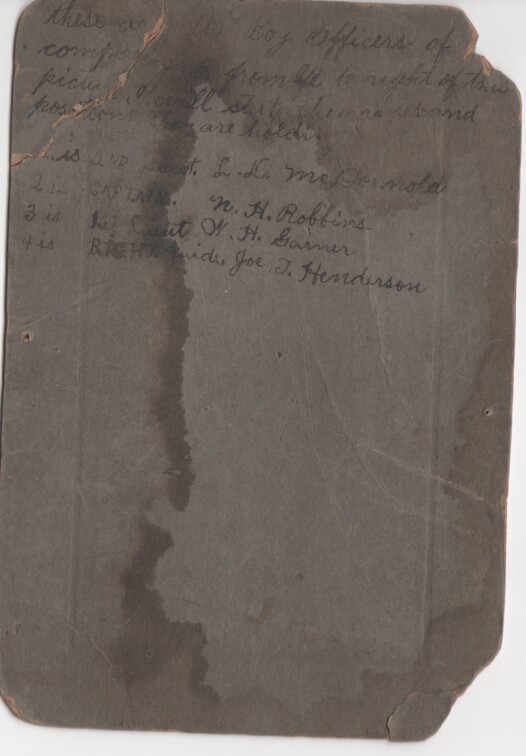 these are the Boy Officers of
company
picture from left to right of this
positions they are holding
1. is 2ND Lieut. L. D. McDernold
2 is CAPTAIN. N. H. Robbins
3 is 1st Lieut W. H. Garner
4 is RIGHT guide. Joe T. Henderson